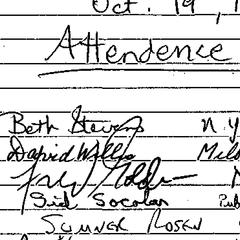 Oct. 19, 1
Attendence
Beth Stevens N.Y
David Willis Mil
Sid Socolar Pub
Sumner Rosen